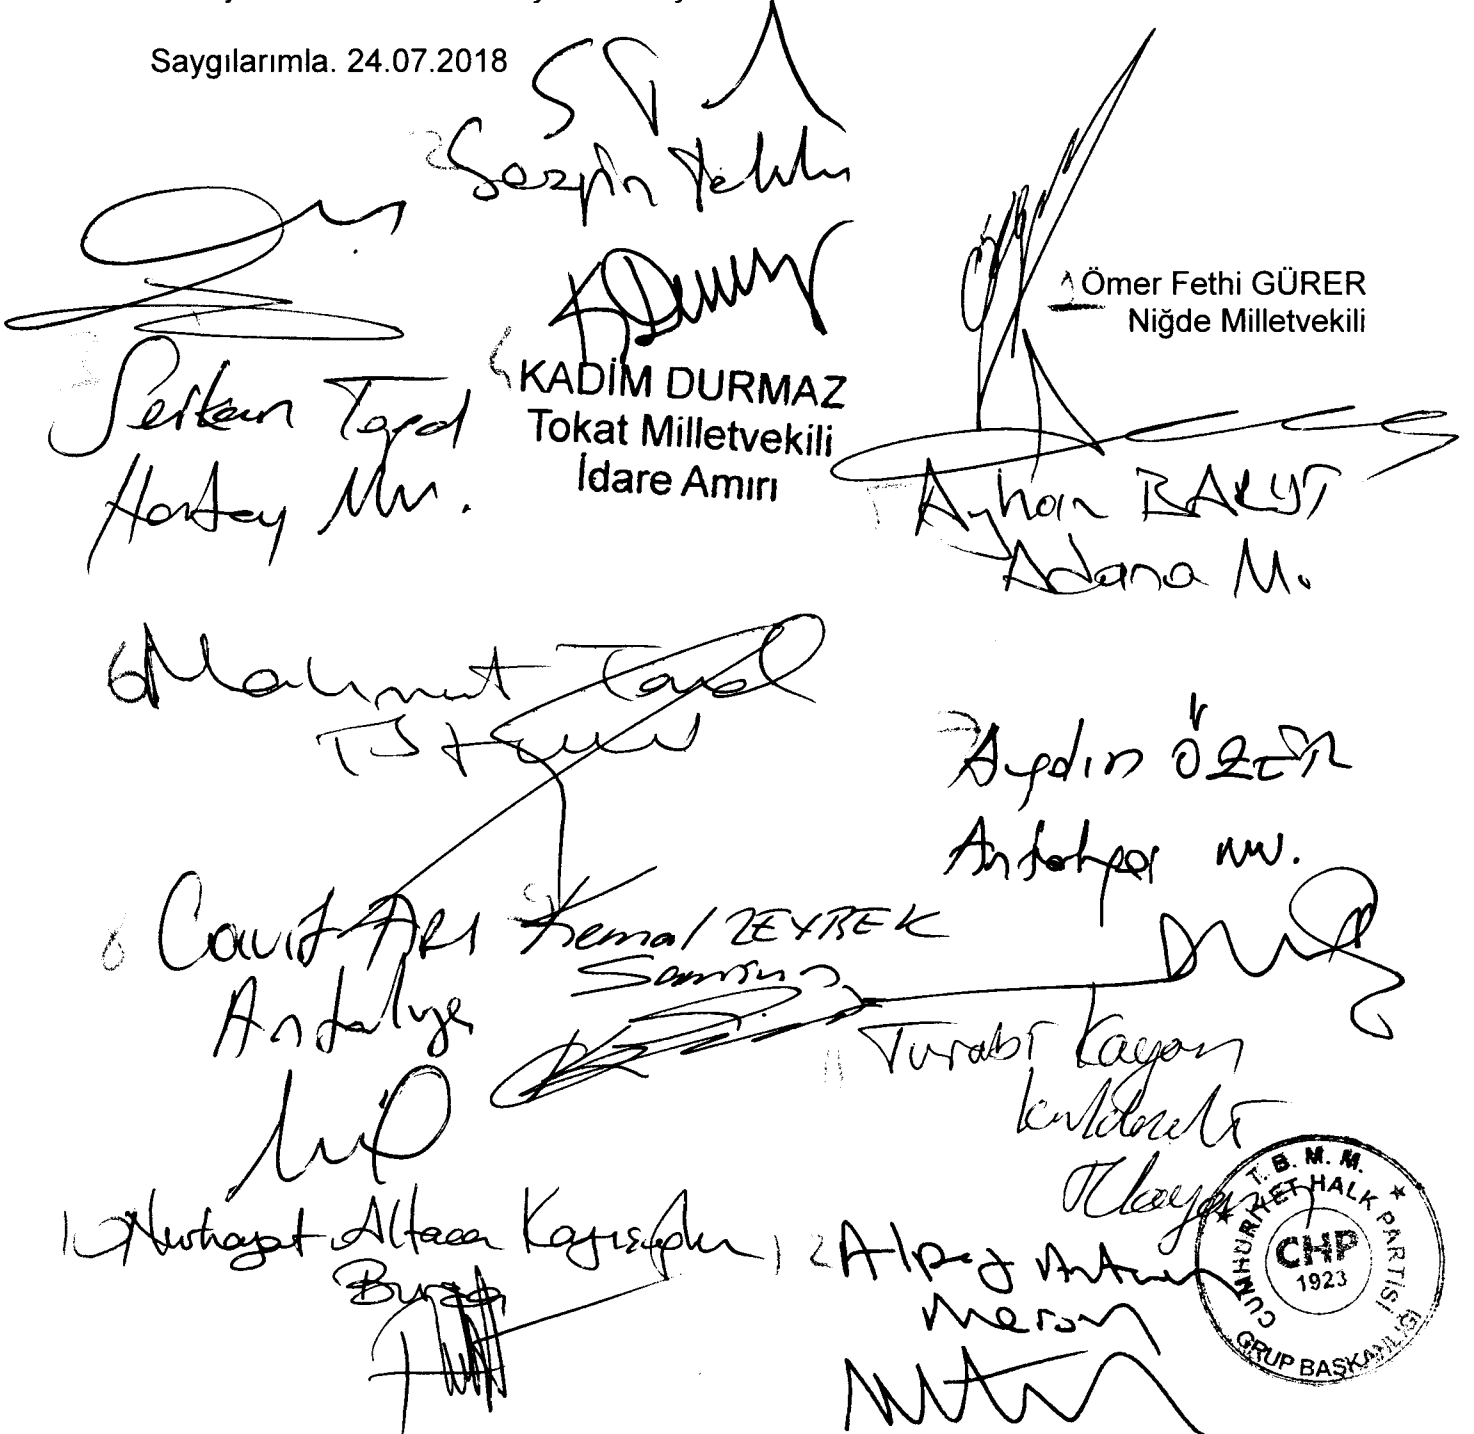 Saygılarımla. 24.07.2018
2 Sezgin
1 Ömer Fethi GÜRER
Niğde Milletvekili
KADİM DURMAZ
Tokat Milletvekili
İdare Amiri
Serkan Topal
Hatay Mv.
Ayhan BARUT
Adana M.
6 Mahmut Tanal
İstanbul
Aydın ÖZER
Antalya MV.
8 Cavit ARI
Antalya
Kemal ZEYBEK
Samsun
11 Turabi Kayan
Kırklareli
10 Nurhayat Altaca Kayışoğlu
Bursa
12 Alpay Antmen
Mersin
T. B. M. M.
CUMHURİYET HALK PARTİSİ
CHP
1923
GRUP BAŞKANLIĞI